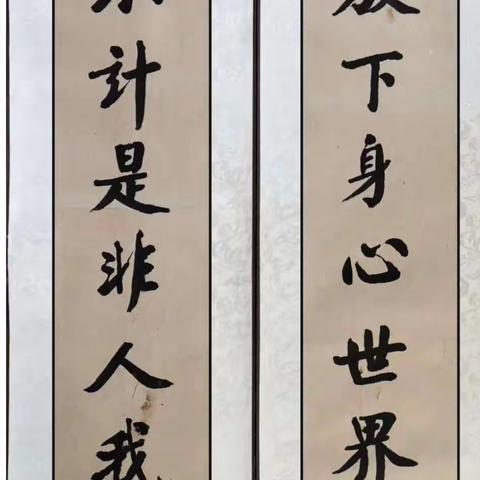 放下身心世界
計是非人我